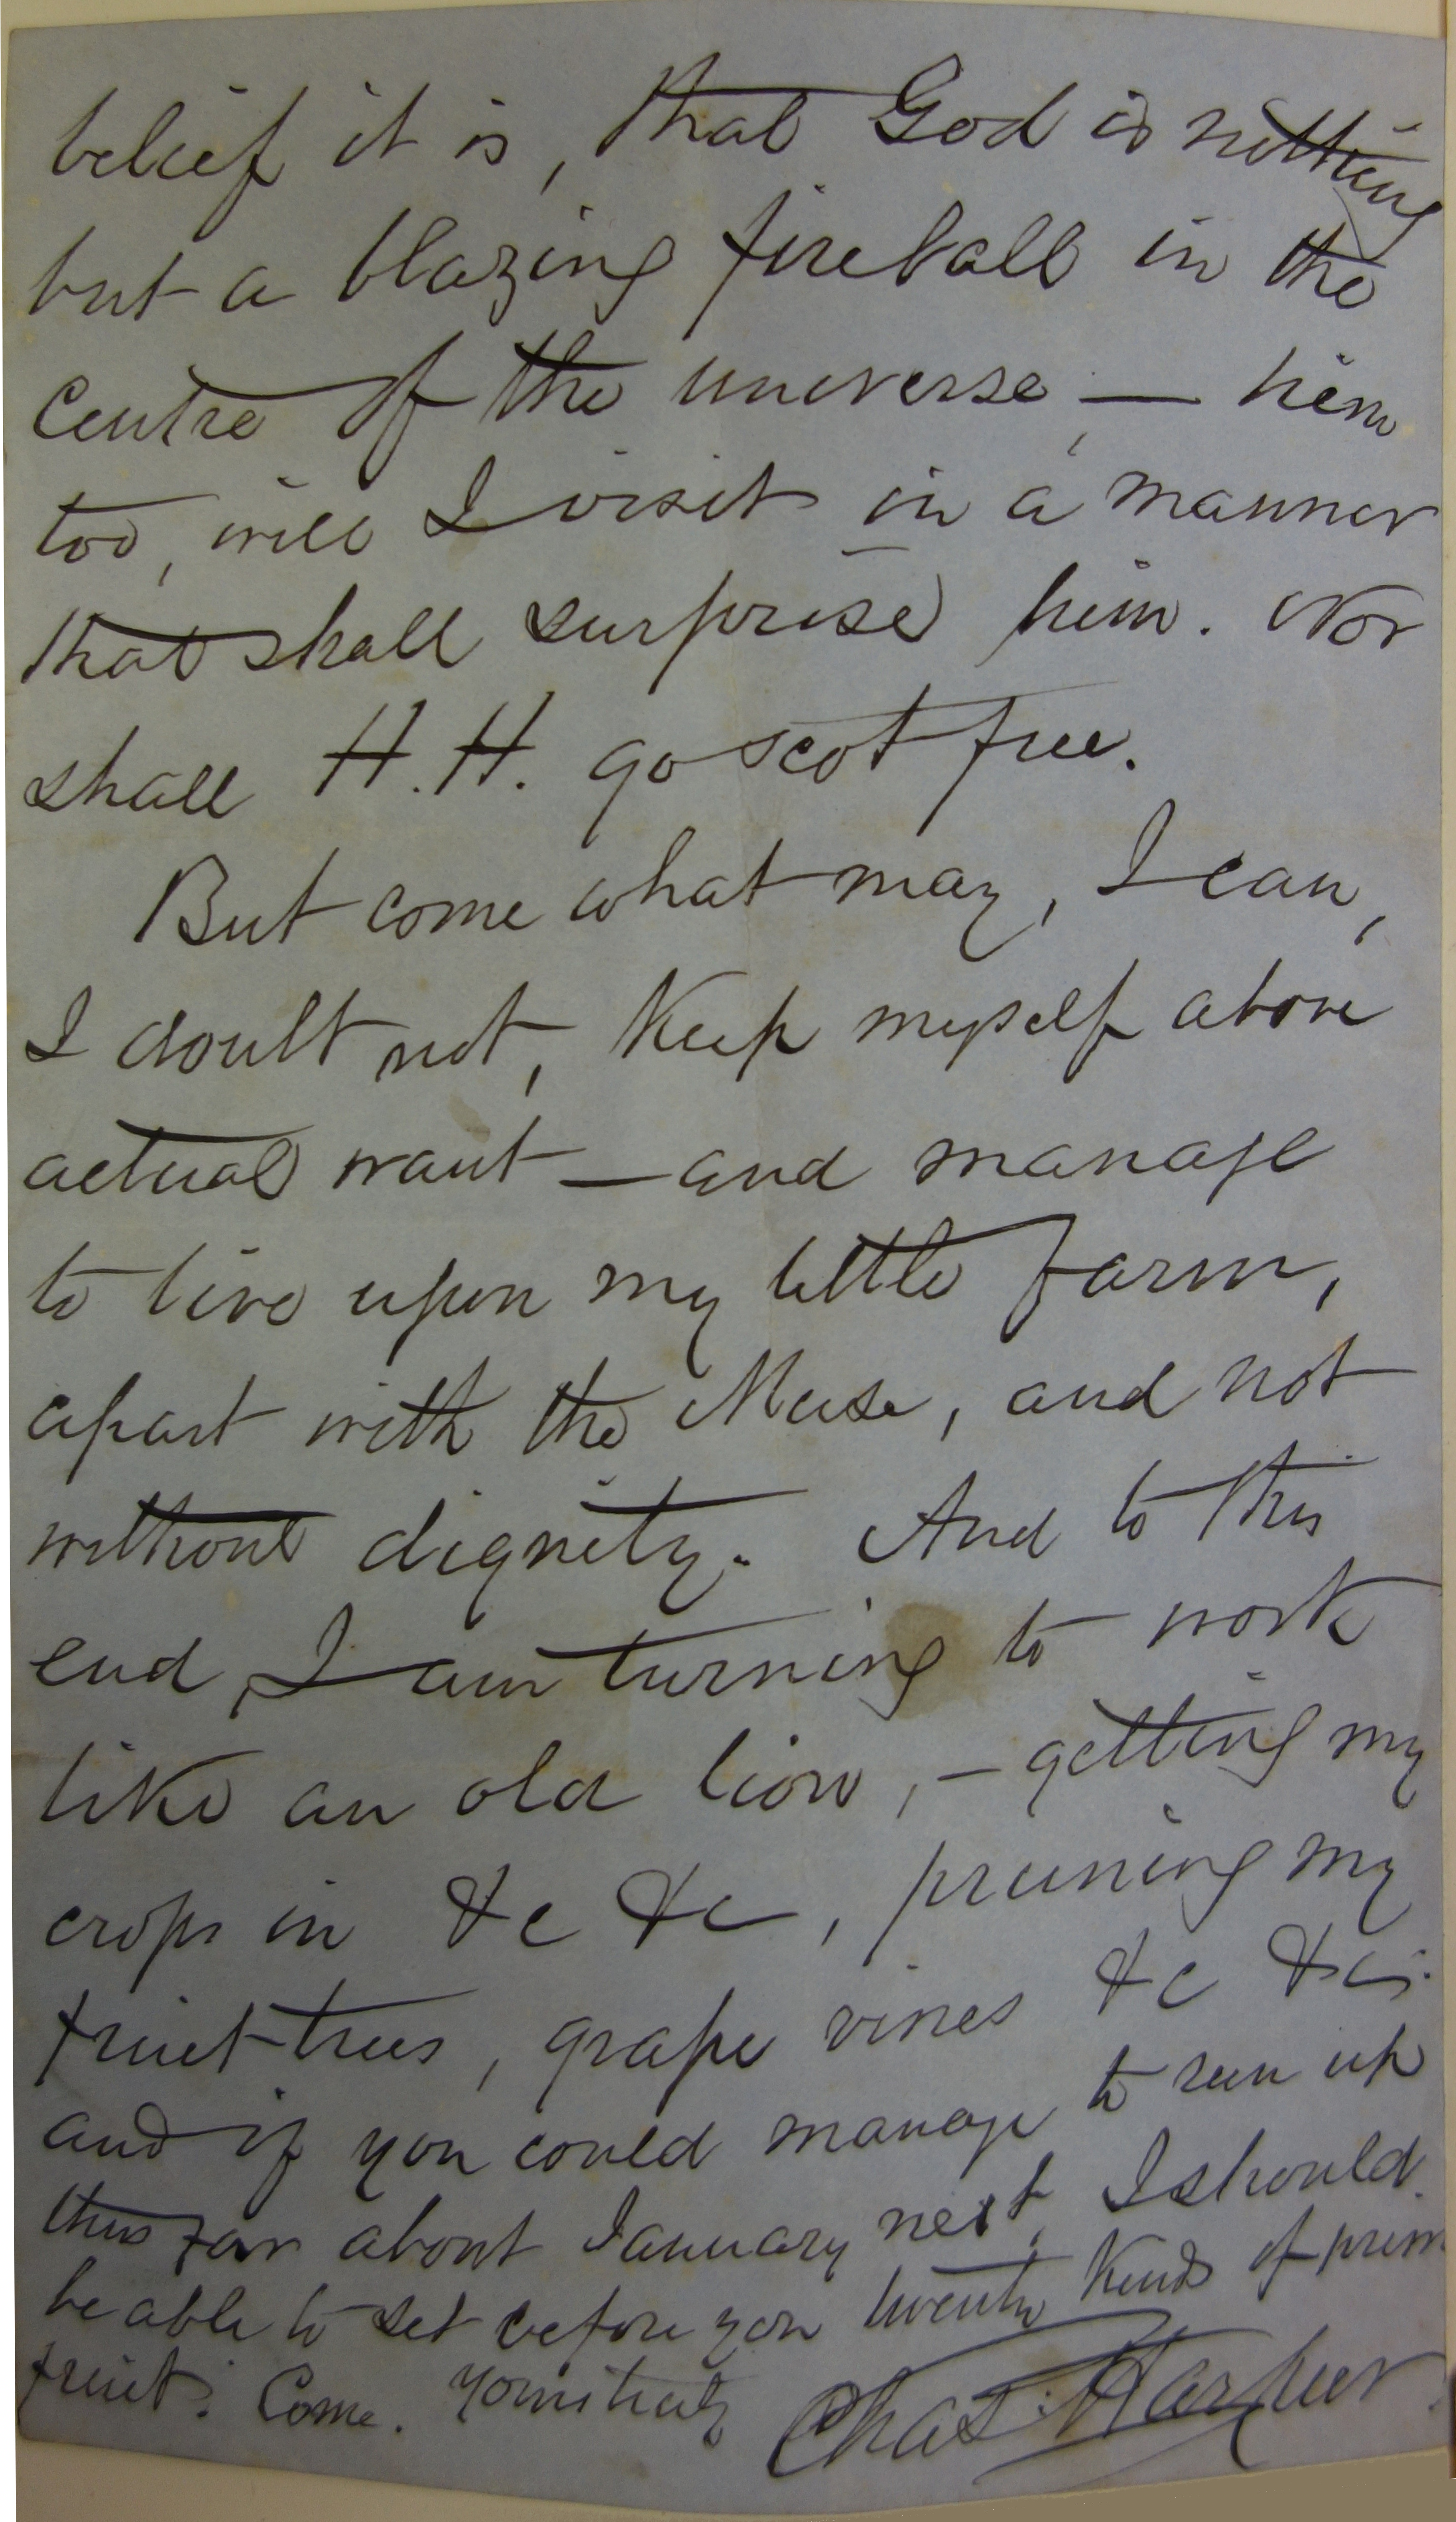 belief it is, that God is nothing
but a blazing fireball in the
centre of the universe, — him
too, will I visit in a manner
that shall surprise him. Nor
shall H.H. go scot free.
But come what may, I can,
I doubt not, keep myself above
actual want — and manage
to live upon my little farm,
apart with the Muse, and not
without dignity. And to this
end, I am turning to work
like an old lion, — getting my
crops in &c &c, pruning my
fruit trees, grape vines &c &c;
and if you could manage to run up
thus far about January next, I should
be able to set before you twenty kinds of prime
fruit. Come. Yours truly Chas. Harpur.